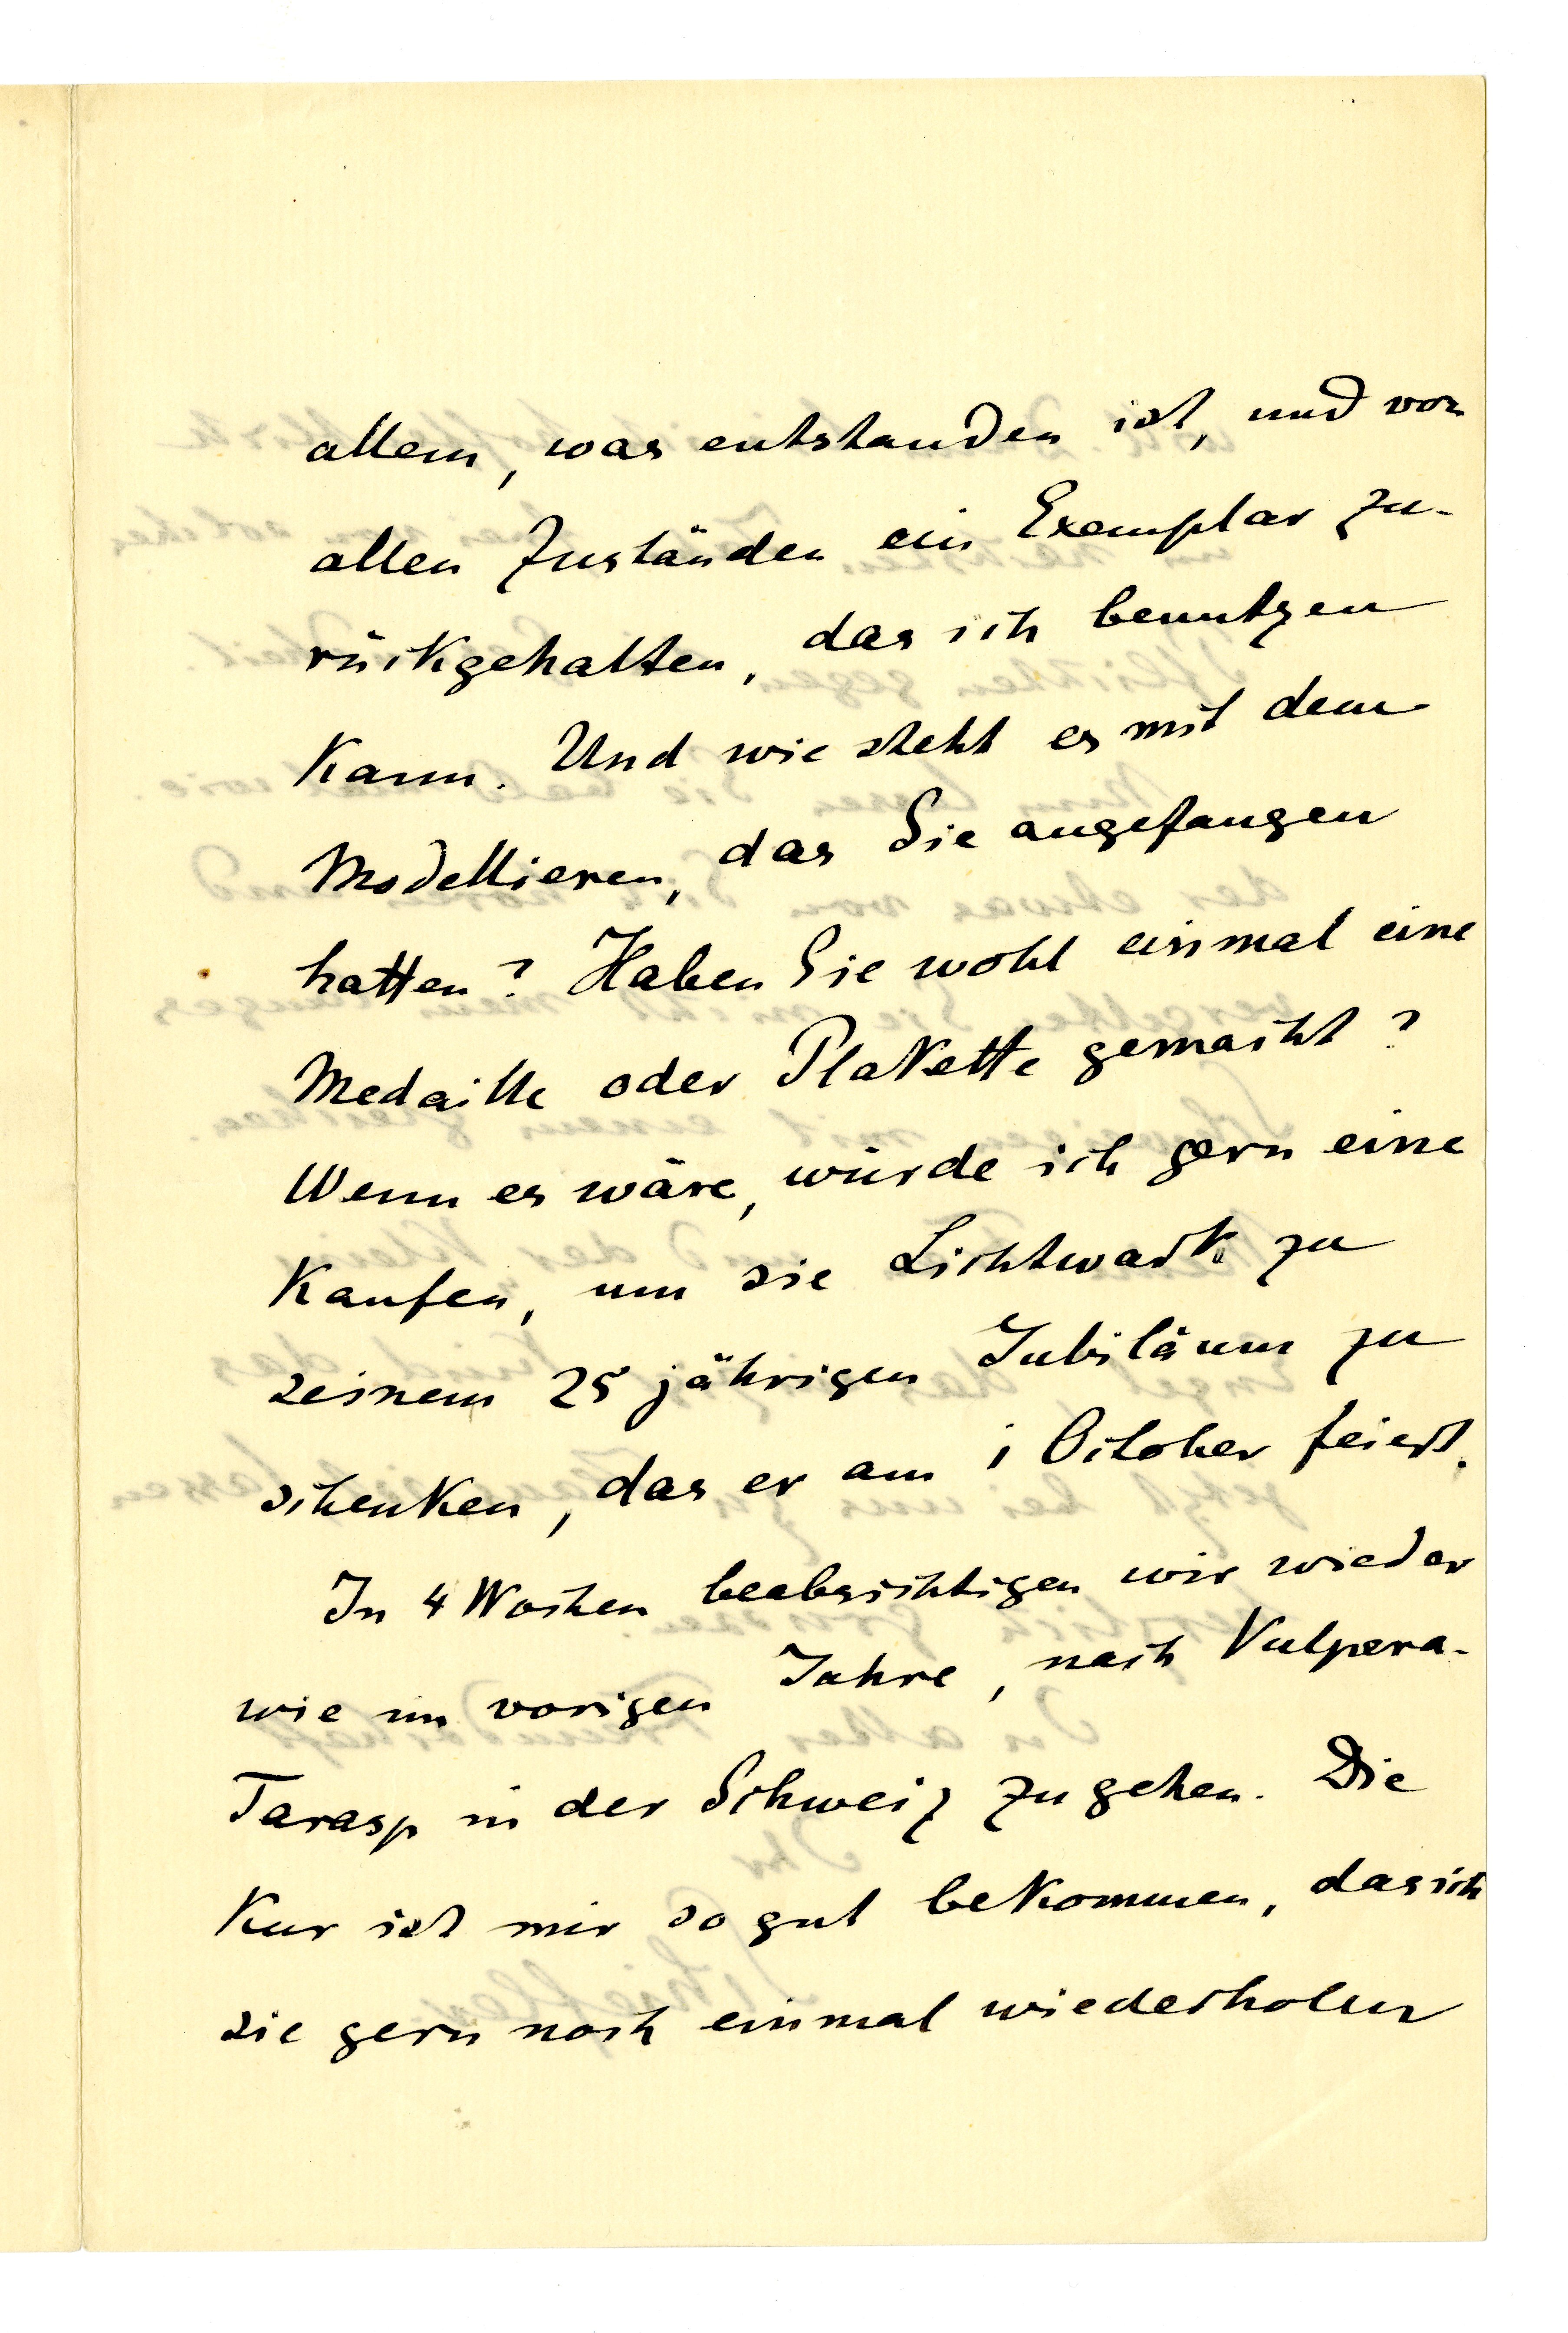 allem, was entstanden ist, und von
allen Zuständen ein Exemplar zu-
rückgehalten, das ich benutzen
kann. Und wie steht es mit dem
Modellieren, das Sie angefangen
hatten? Haben Sie wohl einmal eine
Medaille oder Plakette gemacht?
Wenn es wäre, würde ich gern eine
kaufen, um sie Lichtwark zu
seinem 25 jährigen Jubiläum zu
schenken, das er am 1 October feiert.
In 4 Wochen beabsichtigen wir wieder
wie im vorigen Jahre, nach Vulpera-
Tarasp in der Schweiz zu gehen. Die
Kur ist mir so gut bekommen, das ich
sie gern noch einmal wiederholen